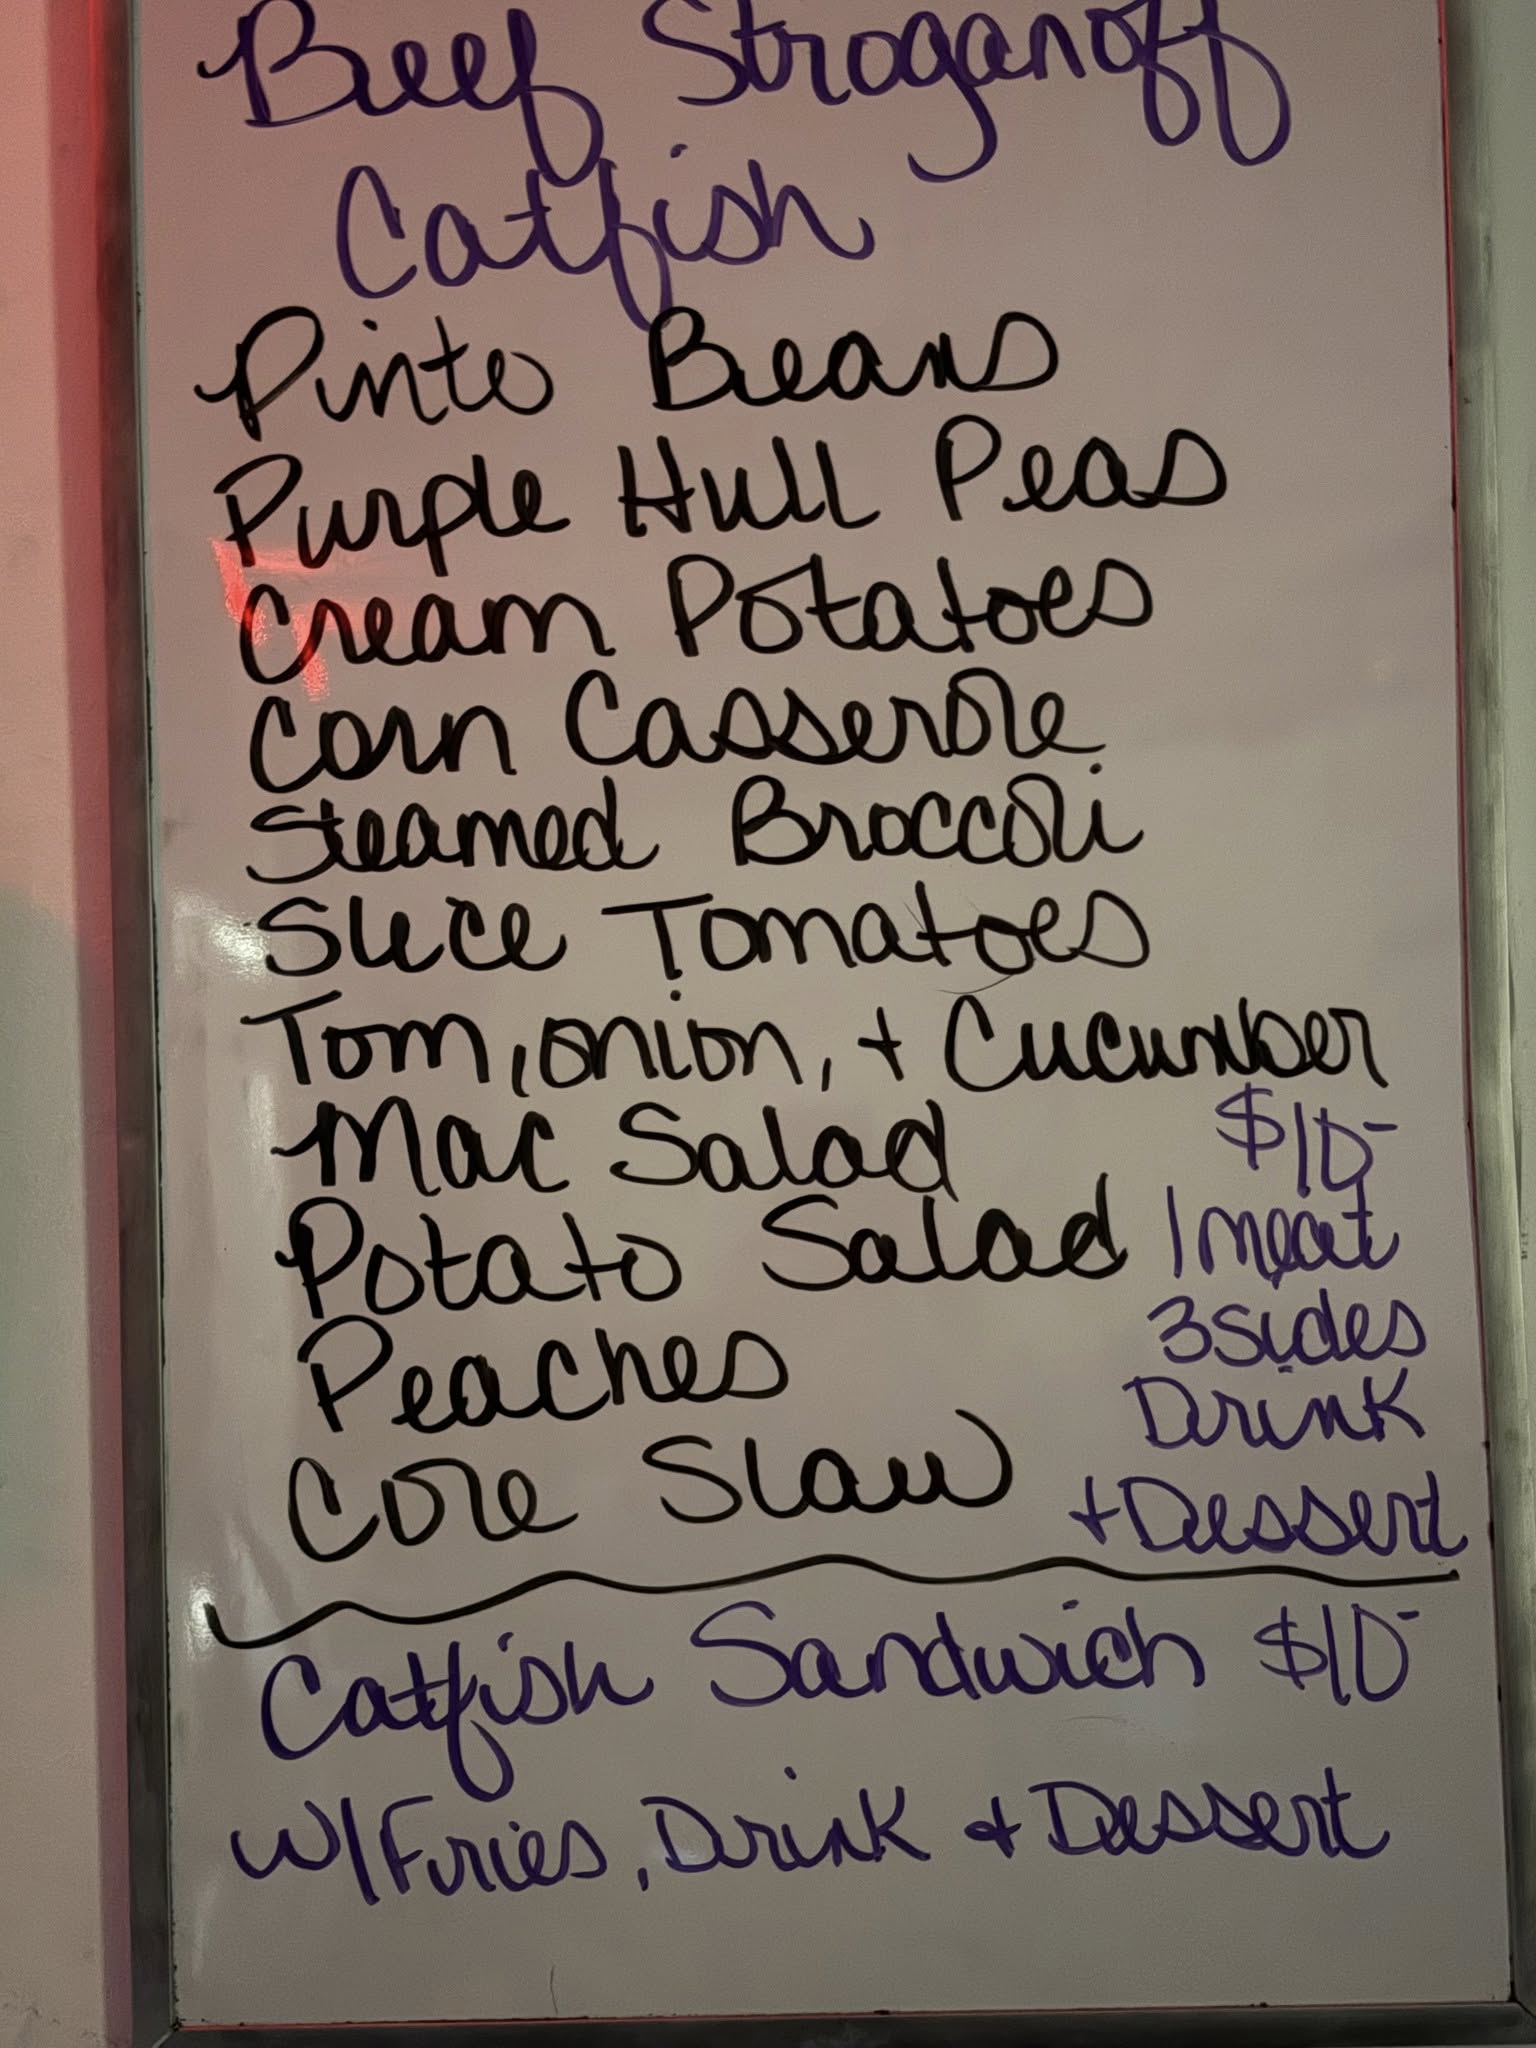 Beef Stroganoff
Catfish
Pinto Beans
Purple Hull Peas
Cream Potatoes
Corn Casserole
Steamed Broccoli
Slice Tomatoes
Tom, onion, + Cucumber
Mac Salad
Potato Salad
Peaches
Cole Slaw
$10-
1 meat
3 sides
Drink
+ Dessert
Catfish Sandwich $10-
w/Fries, Drink + Dessert